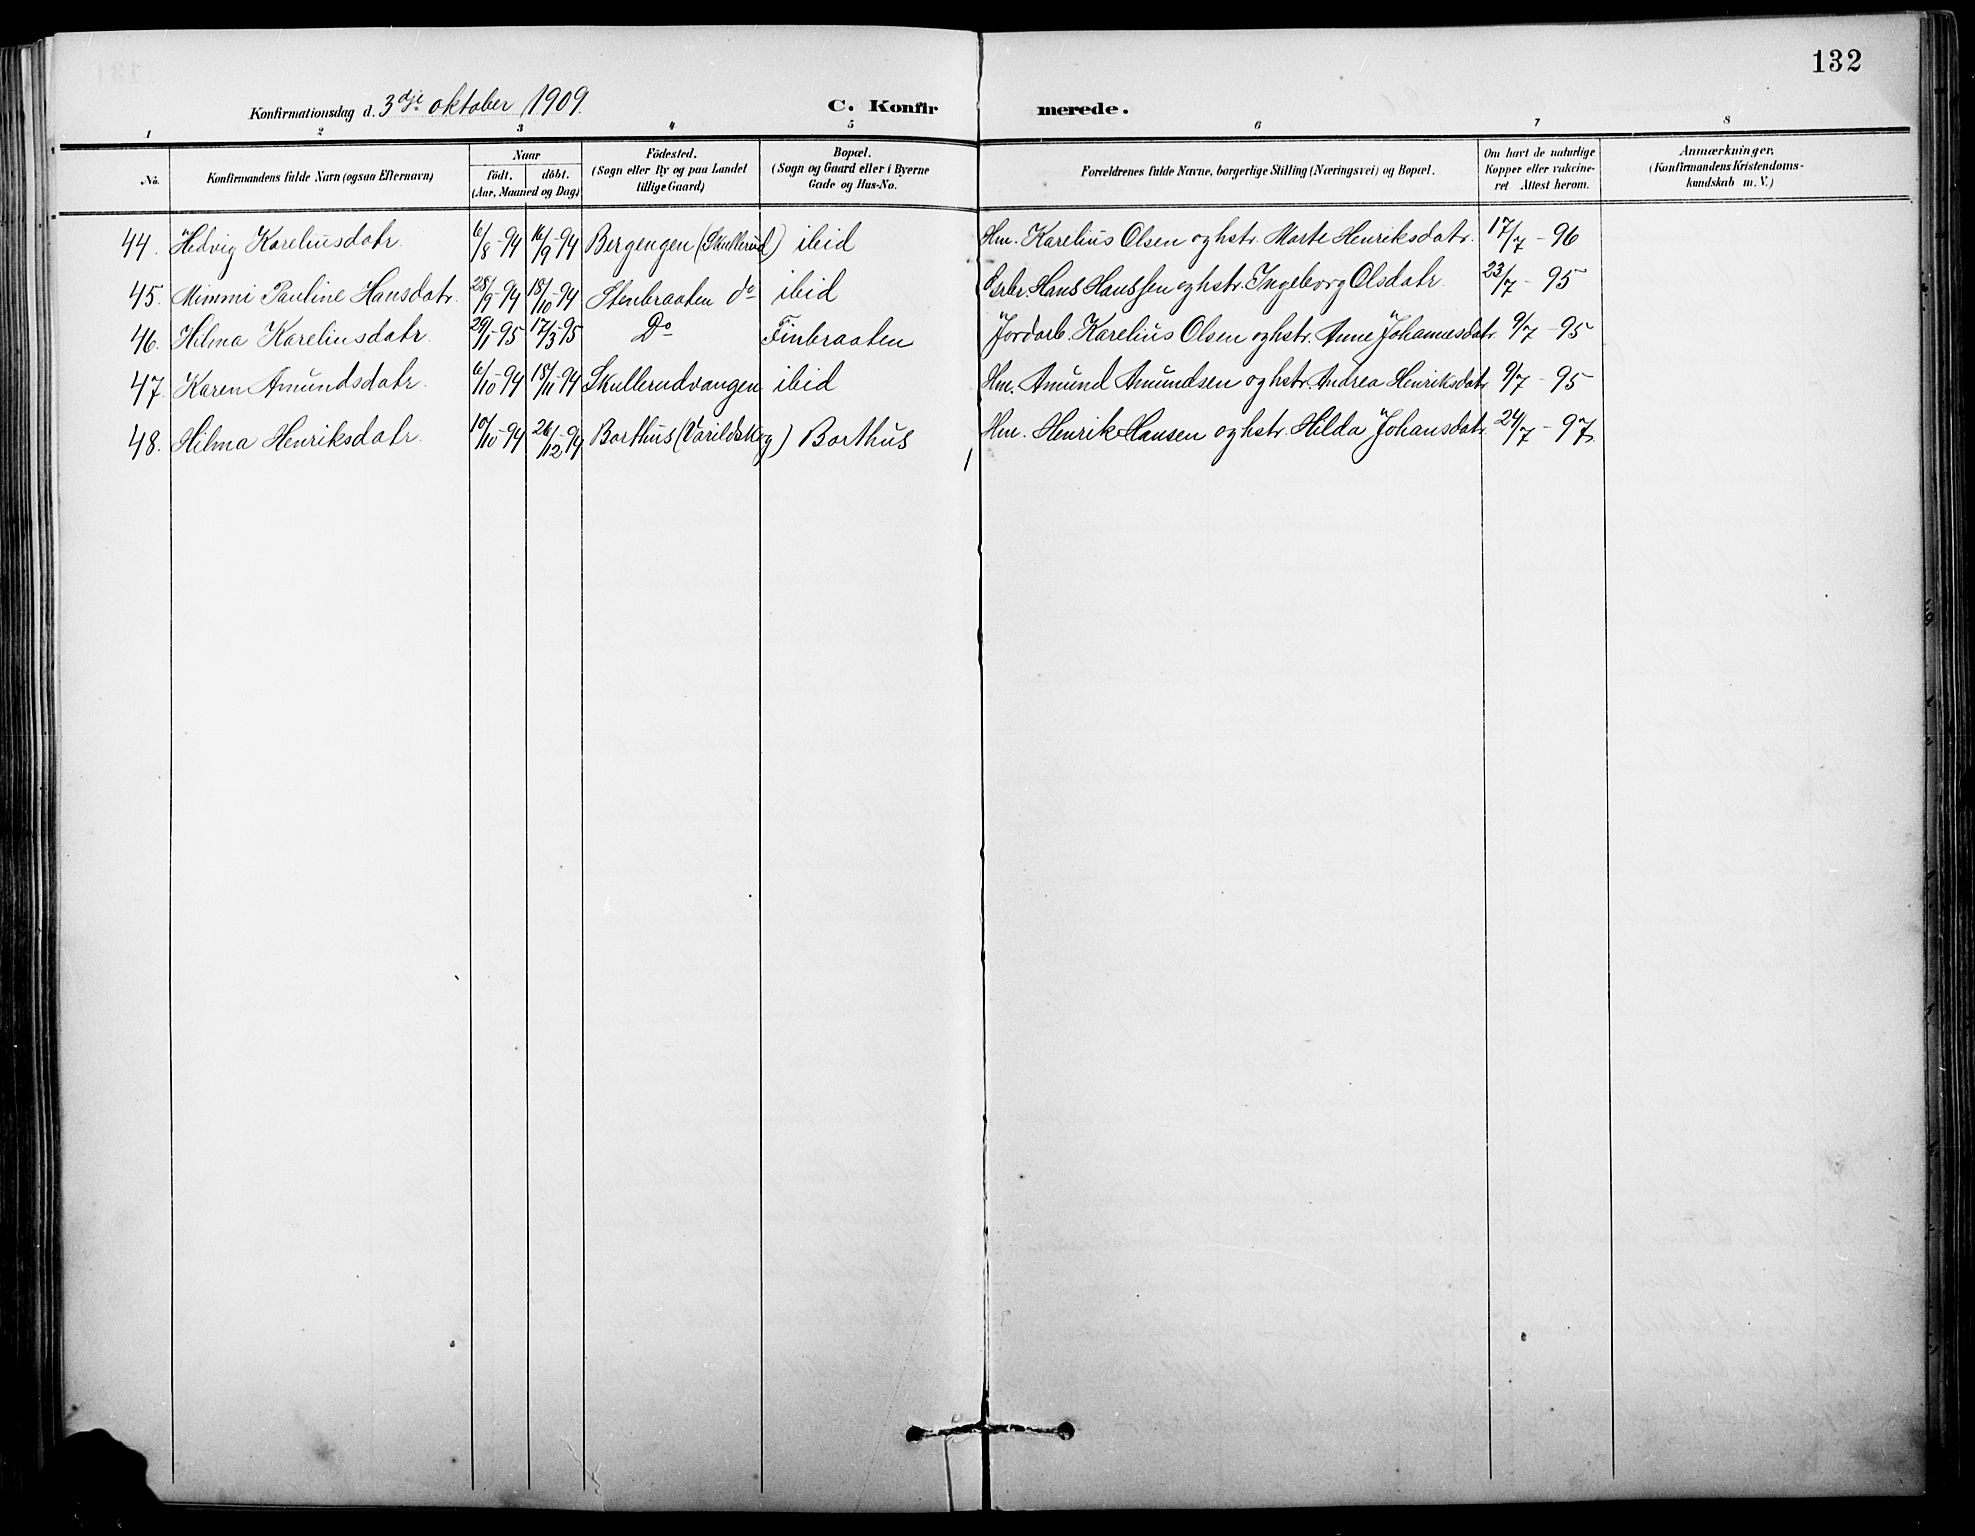 132
Konfirmationsdag d. 3dje oktober 1909. C. Konfirmerede.
1 2 3 4 5 6 7 8
No.
Konfirmandens fulde Navn (ogsaa Efternavn)
Naar
födt. döbt.
(Aar, Maaned og Dag)
Födested.
(Sogn eller By og paa Landet
tillige Gaard)
Bopæl.
(Sogn og Gaard eller i Byerne
Gade og Hus-No.
Forældrenes fulde Navne, borgerlige Stilling (Næringsvei) og Bopæl.
Om havt de naturlige
Kopper eller vakcine-
ret Attest herom.
Anmærkninger,
(Konfirmandens Kristendoms-
kundskab m. V.)
44. Hedvig Kareliusdatr. 6/8-94 16/9-94 Bergengen (Skullerud) ibid Hm. Karelius Olsen og hstr. Marte Henriksdatr. 17/7-96
45. Mimmi Pauline Hansdatr. 28/9-94 18/10-94 Stenbraaten do ibid Hans Hanssen og hstr. Ingeborg Olsdatr. 23/7-95
46. Hilma Kareliusdatr. 29/1-95 17/3-95 Do Finbraaten Jordarb. Karelius Olsen og hstr. Anne Johannesdatr. 9/7-95
47. Karen Amundsdatr. 6/10-94 18/11-94 Skullerudvangen ibid Hm. Amund Amundsen og hstr. Andrea Henriksdatr. 9/7-95
48. Hilma Henriksdatr. 10/10-94 26/12-94 Borthus (Varildskog) Borthus Hm. Henrik Hansen og hstr. Hilda Johansdatr. 24/7-97.